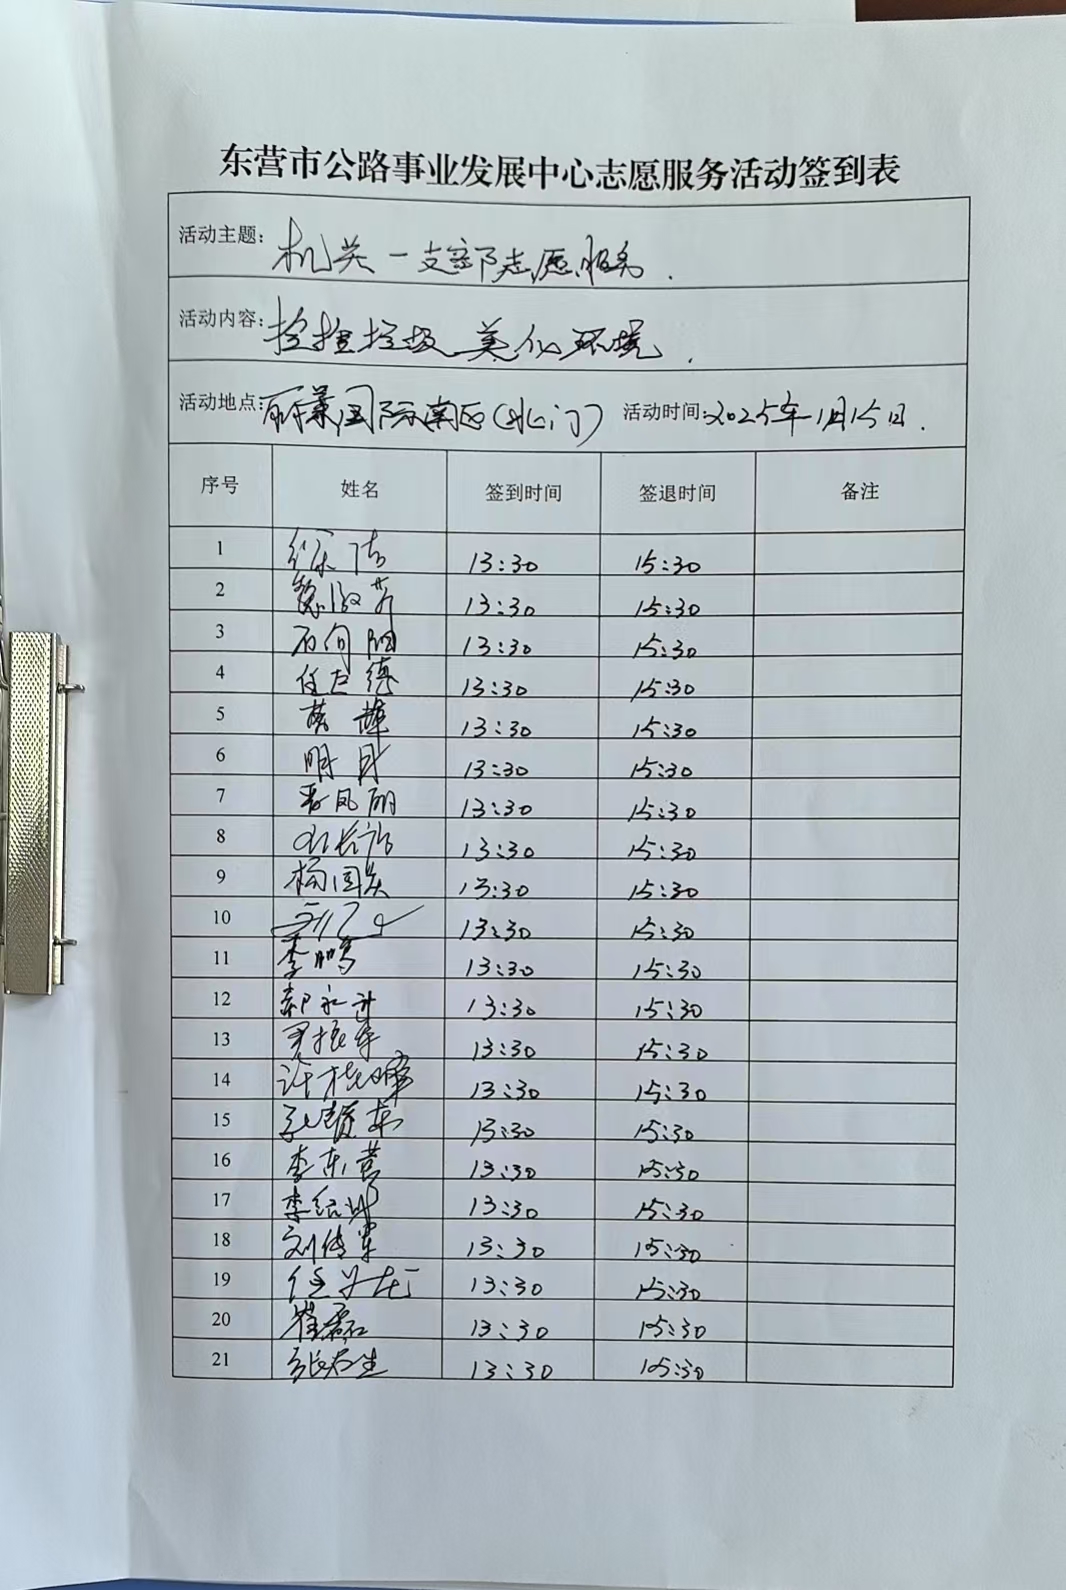 东营市公路事业发展中心志愿服务活动签到表
活动主题: 机关一支部志愿服务.
活动内容: 捡垃圾 美化环境.
活动地点: 丽景国际南区(北门) 活动时间:2025年1月15日.
序号 姓名 签到时间 签退时间 备注
1 徐洁 13:30 15:30
2 魏淑芳 13:30 15:30
3 石向阳 13:30 15:30
4 任志德 13:30 15:30
5 13:30 15:30
6 明月 13:30 15:30
7 李凤丽 13:30 15:30
8 13:30 15:30
9 杨国芳 13:30 15:30
10 13:30 15:30
11 李鹏 13:30 15:30
12 郝永升 13:30 15:30
13 尹振军 13:30 15:30
14 许桂峰 13:30 15:30
15 13:30 15:30
16 李东营 13:30 15:30
17 李绍斌 13:30 15:30
18 刘传军 13:30 15:30
19 13:30 15:30
20 崔磊 13:30 15:30
21 张春生 13:30 15:30